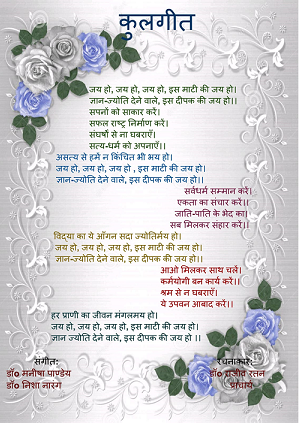 कुलगीत
जय हो, जय हो, जय हो, इस माटी की जय हो।
ज्ञान-ज्योति देने वाले, इस दीपक की जय हो।।
सपनों को साकार करें।
सफल राष्ट्र निर्माण करें।
संघर्षों से ना घबराएँ।
सत्य-धर्म को अपनाएँ।।
असत्य से हमें न किंचित भी भय हो।
जय हो, जय हो, जय हो , इस माटी की जय हो।
ज्ञान-ज्योति देने वाले, इस दीपक की जय हो।।
सर्वधर्म सम्मान करें।
एकता का संचार करें।
जाति-पाति के भेद का।
सब मिलकर संहार करें।।
विद्या का ये आँगन सदा ज्योतिर्मय हो।
जय हो, जय हो, जय हो, इस माटी की जय हो।
ज्ञान-ज्योति देने वाले, इस दीपक की जय हो।।
आओ मिलकर साथ चलें।
कर्मयोगी बन कार्य करें।।
श्रम से न घबराएँ।
ये उपवन आबाद करें।।
हर प्राणी का जीवन मंगलमय हो।
जय हो, जय हो, जय हो, इस माटी की जय हो।
ज्ञान ज्योति देने वाले, इस दीपक की जय हो ।।
संगीत:
डॉ० मनीषा पाण्डेय
डॉ० निशा नारंग
रचनाकार:
डॉ० राजीव रतन
प्राचार्य